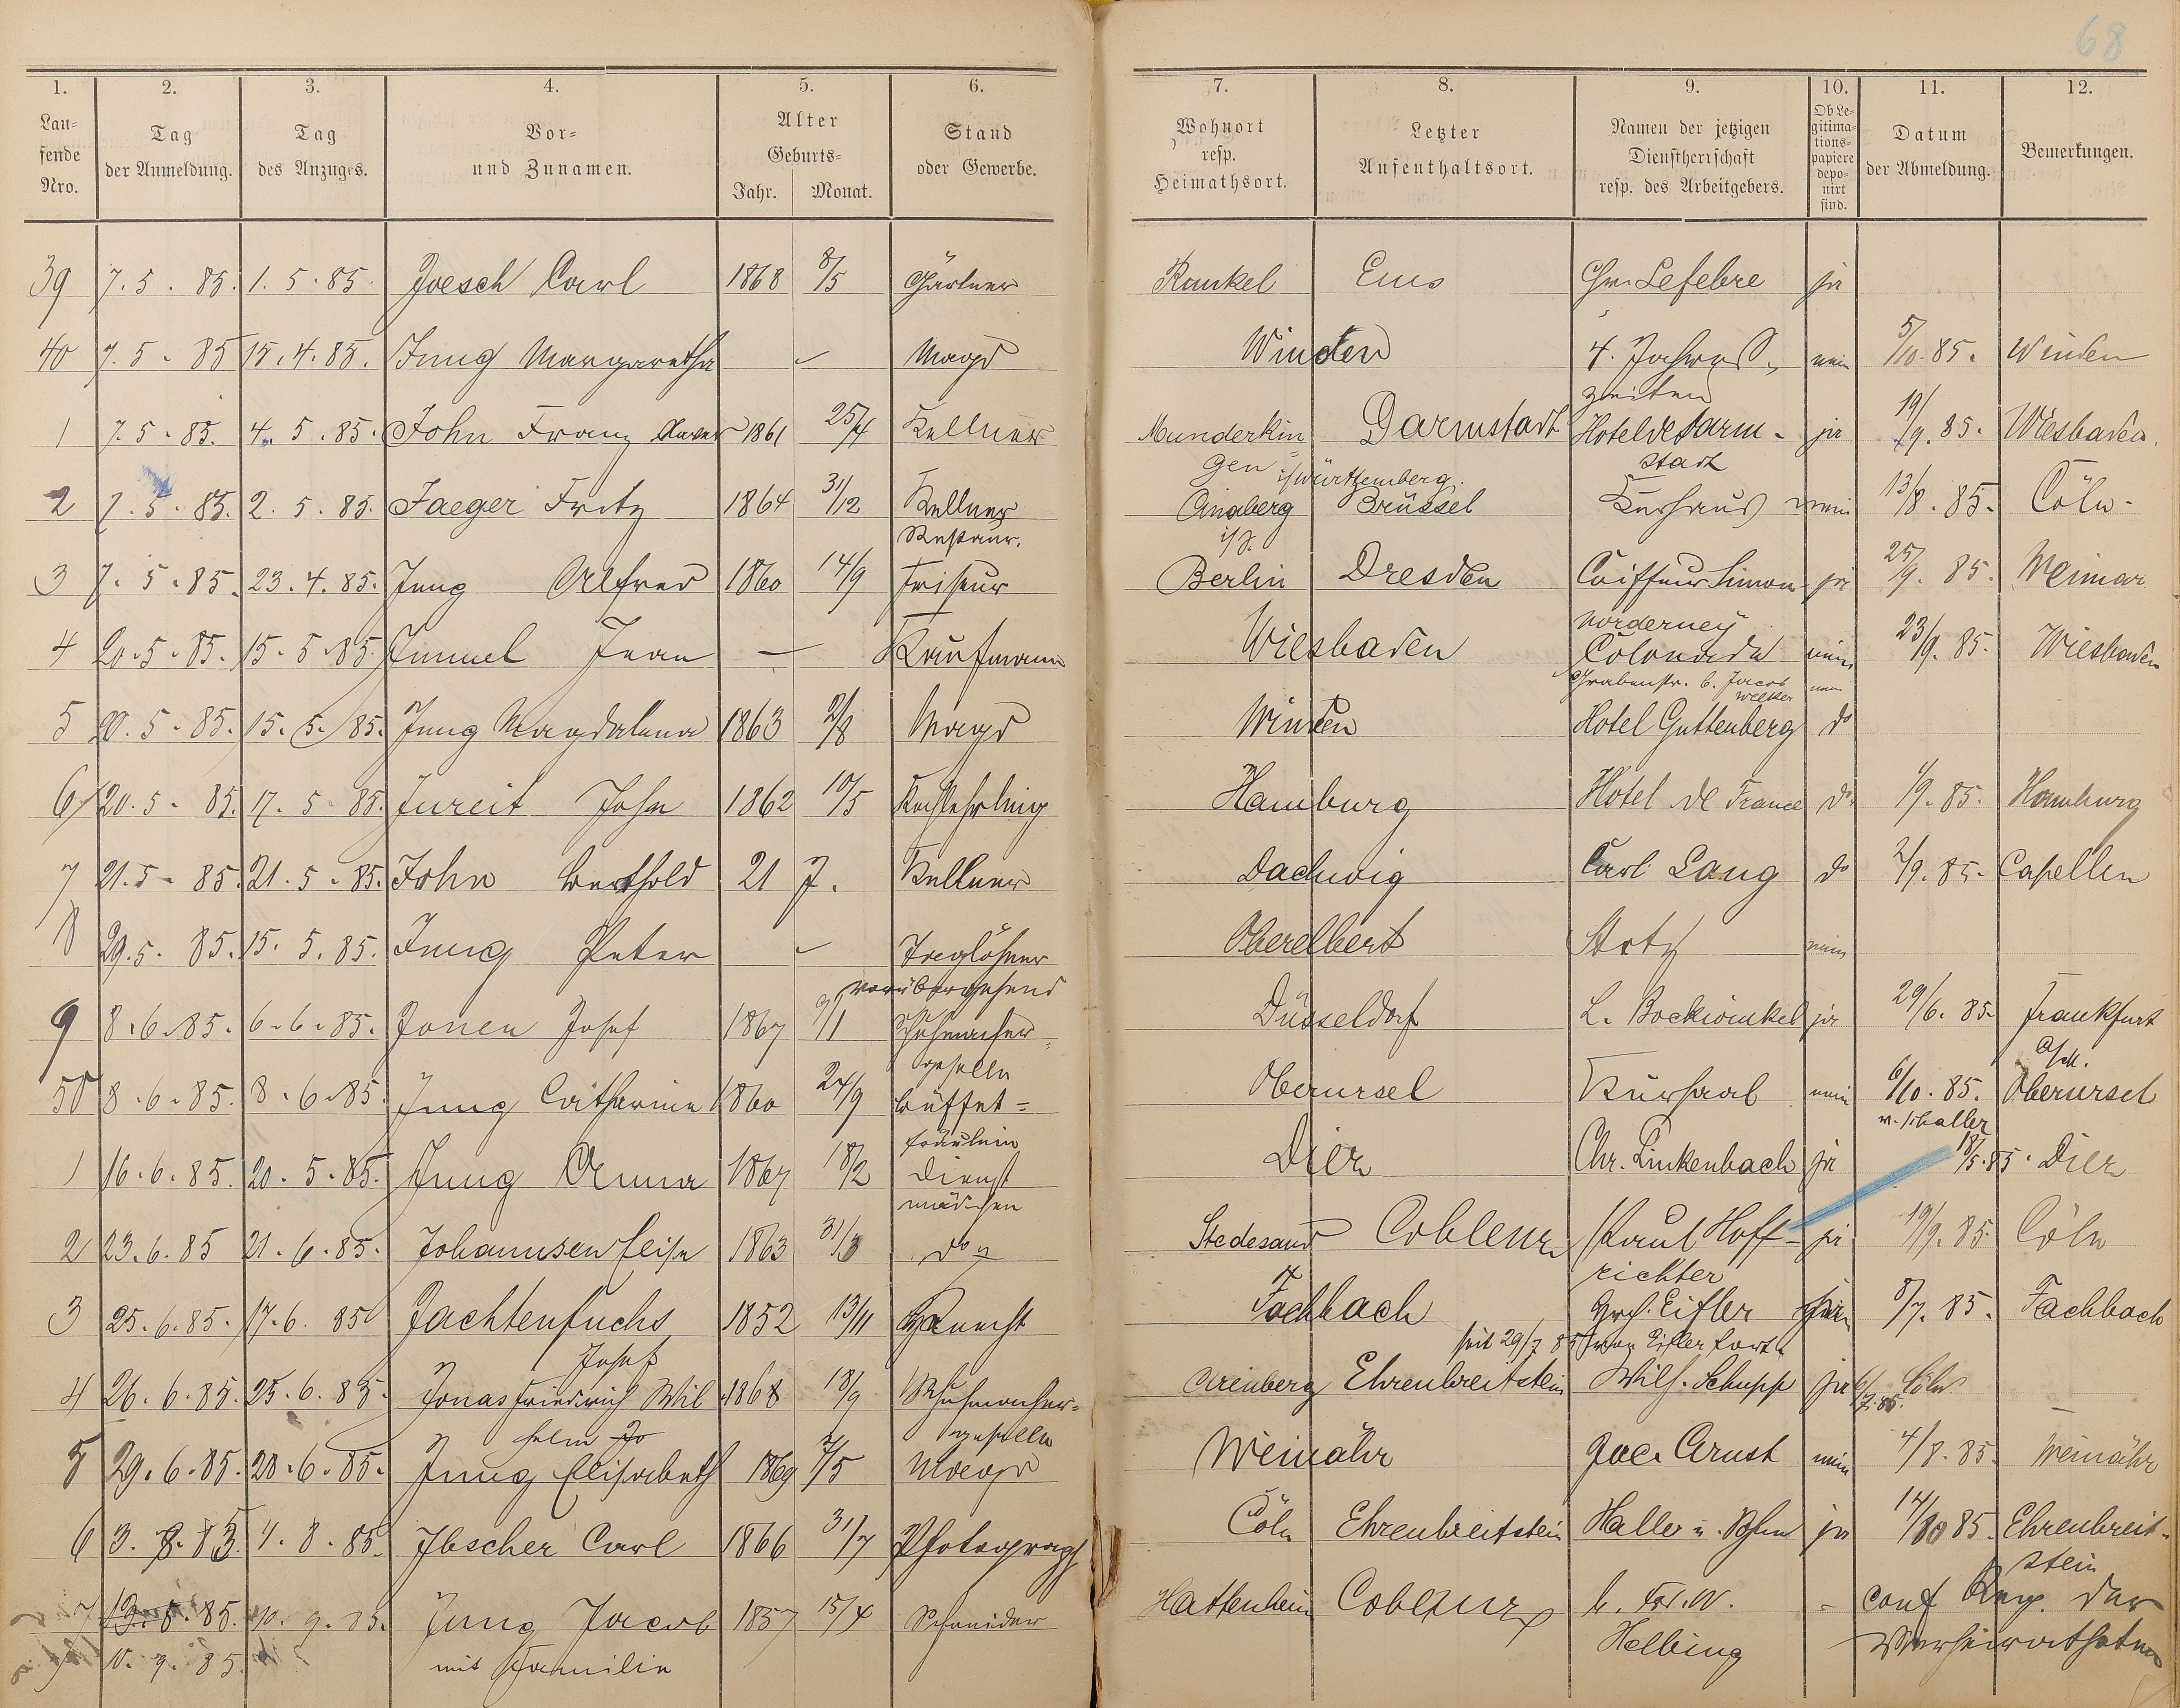 68
1. 2. 3. 4. 5. 6. 7. 8. 9. 10. 11. 12.
Lau=
fende
Nro.
Tag
der Anmeldung.
Tag
des Anzuges.
Vor=
und Zunamen.
Alter
Geburts=
Jahr. Monat.
Stand
oder Gewerbe.
Wohnort
resp.
Heimathsort.
Letzter
Aufenthaltsort.
Namen der jetzigen
Dienstherrschaft
resp. des Arbeitgebers.
Ob Le=
gitima=
tions=
papiere
depo=
nirt
sind.
Datum
der Abmeldung.
Bemerkungen.
39 7. 5. 85. 1. 5. 85. Joesch Carl 1868 8/5 Gärtner Runkel Ems Chr. Lefebre ja
40 7. 5. 85 15. 4. 85. Jung Margaretha - Magd Winden 4. Jahres- nein 5/10. 85. Winden
zeiten
1 7. 5. 85. 4. 5. 85. John Franz Xaver 1861 25/4 Kellner Munderkin= Darmstadt Hotel de Darm- ja 19/9. 85. Wiesbaden.
gen i/Württemberg. stadt
2 7. 5. 85. 2. 5. 85. Jaeger Fritz 1864 31/12 Kellner Brüssel Kurhaus nein 13/8. 85. Cöln.
Restaur.
3 7. 5. 85. 23. 4. 85. Jung Alfred 1860 14/9 Friseur Berlin Dresden Coiffeur Simon ja 25/9. 85. Weimar
Norderney
4 20. 5. 85. 15. 5. 85. Jummel Jean — Kaufmann Wiesbaden Colonade nein 23/9. 85. Wiesbaden
Grabenstr. b. Jacob nein
Welker
5 20. 5. 85. 15. 5. 85. Jung Magdalena 1863 2/8 Magd Winden Hotel Guttenberg do
6 20. 5. 85. 17. 5. 85. Jureit John 1862 10/5 Kochlehrling Hamburg Hotel de France do 1/9. 85. Hamburg
7 21. 5. 85. 21. 5. 85. John Berthold 21 J. Kellner Dachwig Carl Lang do 2/9. 85. Capellen
8 29. 5. 85. 15. 5. 85. Jung Peter - Taglöhner Oberelbert Stotz nein
vorübergehend
9 8. 6. 85. 6. 6. 85. Jonen Josef 1867 9/1 Schuhmacher= Düsseldorf L. Bockwinkel ja 29/6. 85. Frankfurt
geselle a/M.
50 8. 6. 85. 8. 6. 85. Jung Catharine 1860 24/9 Büffet= Oberursel Kursaal nein 6/10. 85. Oberursel
fräulein
1 16. 6. 85. 20. 5. 85. Jung Anna 1867 18/2 Dienst Diez Chr. Linkenbach ja 18/5. 85. Diez
mädchen
2 23. 6. 85 21. 6. 85. Johannsen Elise 1863 31/3 do Stedesand Coblenz Paul Hoff- ja 19/9. 85. Cöln
richter
3 25. 6. 85. 17. 6. 85 Jachtenfuchs 1852 13/11 Knecht Fachbach Eifler 8/7. 85. Fachbach
Josef seit 29/7 85 von Eifler fort
4 26. 6. 85. 25. 6. 85. Jonas Friedrich Wil 1868 18/9 Schuhmacher= Arenberg Ehrenbreitstein Wilh. Schupp ja 6/7. 85. Cöln
helm geselle
5 29. 6. 85. 28. 6. 85. Jung Elisabeth 1869 7/5 Magd Weinähr Jac. Arnst nein 4/8. 85. Weinähr
6 3. 8. 85 1. 8. 85. Jbscher Carl 1866 31/7 Photograph Cöln Ehrenbreitstein Haller u. Sohn ja 14/10 85. Ehrenbreit-
stein
7 10. 9. 85. Jung Jacob 1857 15/4 Schneider Hattenheim Coblenz b. Frd. W. - conf Reg. der
10. 9. 85. mit Familie Helbing Verheiratheten